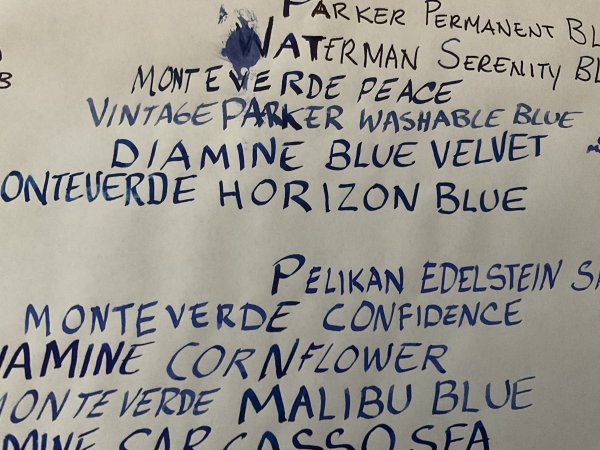 PARKER PERMANENT BL
WATERMAN SERENITY BL
B
MONTEVERDE PEACE
VINTAGE PARKER WASHABLE BLUE
DIAMINE BLUE VELVET
ONTEVERDE HORIZON BLUE
PELIKAN EDELSTEIN SA
MONTEVERDE CONFIDENCE
IAMINE CORNFLOWER
MONTEVERDE MALIBU BLUE
MINE SARGASSO SEA